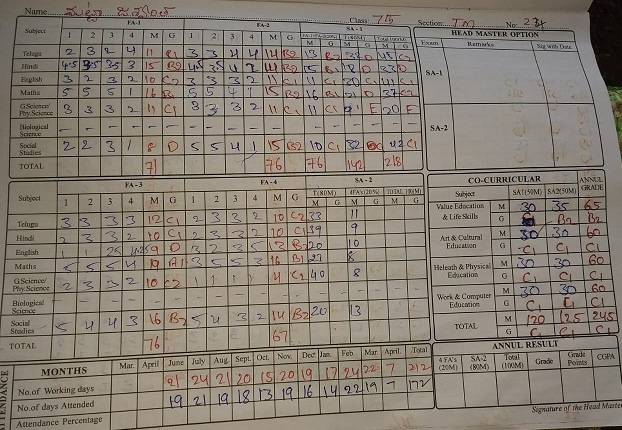 Name ముల్లా జస్వంత్ Class: 7th Section: TM No: 234
Subject FA-1 FA-2 SA-1 HEAD MASTER OPTION
1 2 3 4 M G 1 2 3 4 M G M G M G M G Exam Remarks Sig with Date
Telugu 2 3 2 4 11 C1 3 3 4 4 14 B2 13 B2 32 D 45 C2
Hindi 4.5 3.5 3.5 3 15 B2 4.5 3.5 4 2 14 B2 15 B2 18 D 33 D
SA-1
English 3 2 3 2 10 C2 3 3 3 2 11 C1 11 C1 30 C1 41 C1
Maths 5 5 5 1 16 B1 5 5 4 1 15 B2 16 B1 21 D 37 C2
G.Science/ Phy.Science 3 3 3 2 11 C1 3 3 3 2 11 C1 11 C1 9 E 20 E
SA-2
Biological Science - - - -
Social Studies 2 2 3 1 8 D 5 5 4 1 15 B2 10 C1 32 42 C1
TOTAL 71 76 76 142 218
Subject FA-3 FA-4 SA-2 CO-CURRICULAR ANNUL GRADE
1 2 3 4 M G 1 2 3 4 M G T(80M) 4FA's(20%) TOTAL 100(M) Subject SA1(50M) SA2(50M)
M G M G M G
Value Education & Life Skills M 30 35 65
G B2 B2
Telugu 3 3 3 3 12 C1 2 3 3 2 10 C2 33 11
Hindi 2 3 3 2 10 C1 2 3 3 2 10 C1 39 9
Art & Cultural Education M 30 30 60
G C1 C1 C1
English 1 1 9 D 3 2 3 5 13 B2 20 10
Maths 5 5 5 4 19 A1 3 5 5 3 16 B1 27 8
Heleath & Physical Education M 30 30 60
G C1 C1 C1
G.Science/ Phy.Science 2 3 3 2 10 C2 1 1 1 4 C2 40 8
Biological Science - - - -
Work & Computer Education M 30 30 60
G C1 C1 C1
Social Studies 5 4 4 3 16 B2 5 4 3 2 14 B2 20 13
TOTAL M 120 125 245
G C1 C1 C1
TOTAL 76 67
ANNUL RESULT
ATTENDANCE MONTHS Mar. April June July Aug. Sept. Oct. Nov. Dec. Jan. Feb. Mar. April. Total
4 FA's (20M) SA-2 (80M) Total (100M) Grade Grade Points CGPA
No.of Working days 21 24 21 20 15 20 19 17 24 22 7 212
No.of days Attended 19 21 19 18 13 19 16 14 22 19 7 172
Attendance Percentage
Signature of the Head Master